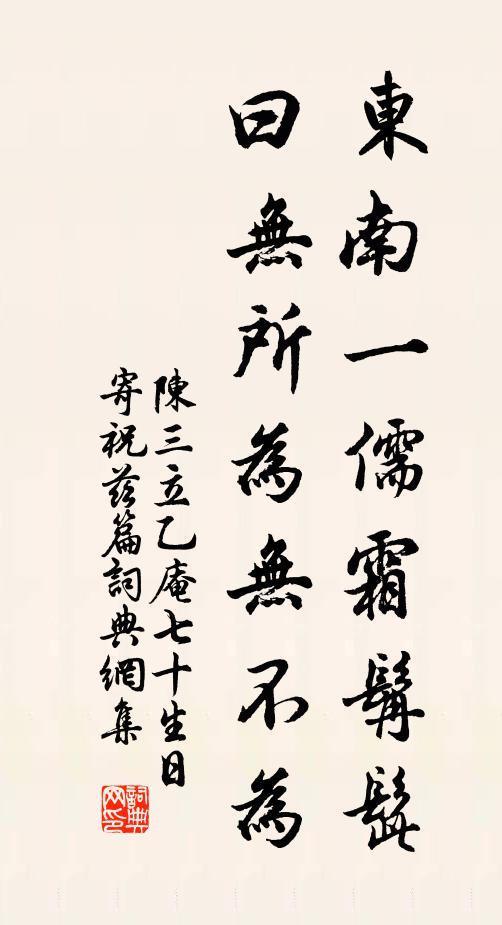 東南一儒霜髯髭
曰無所為無不為
陳三立乙庵七十生日
寄祝茲篇詞典網集
詞典网印